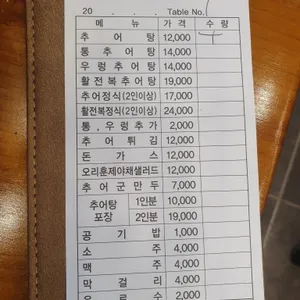 20 . . . Table No. 1
메 뉴 가 격 수 량
추 어 탕 12,000 ㅜ
통 추 어 탕 14,000
우 렁 추 어 탕 14,000
활전복추어탕 19,000
추어정식(2인이상) 17,000
활전복정식(2인이상) 24,000
통 , 우 렁 추 가 2,000
추 어 튀 김 12,000
돈 가 스 12,000
오리훈제야채샐러드 12,000
추 어 군 만 두 7,000
추어탕 포장 1인분 10,000
2인분 19,000
공 기 밥 1,000
소 주 4,000
맥 주 4,000
막 걸 리 4,000
음 료 수 2,000